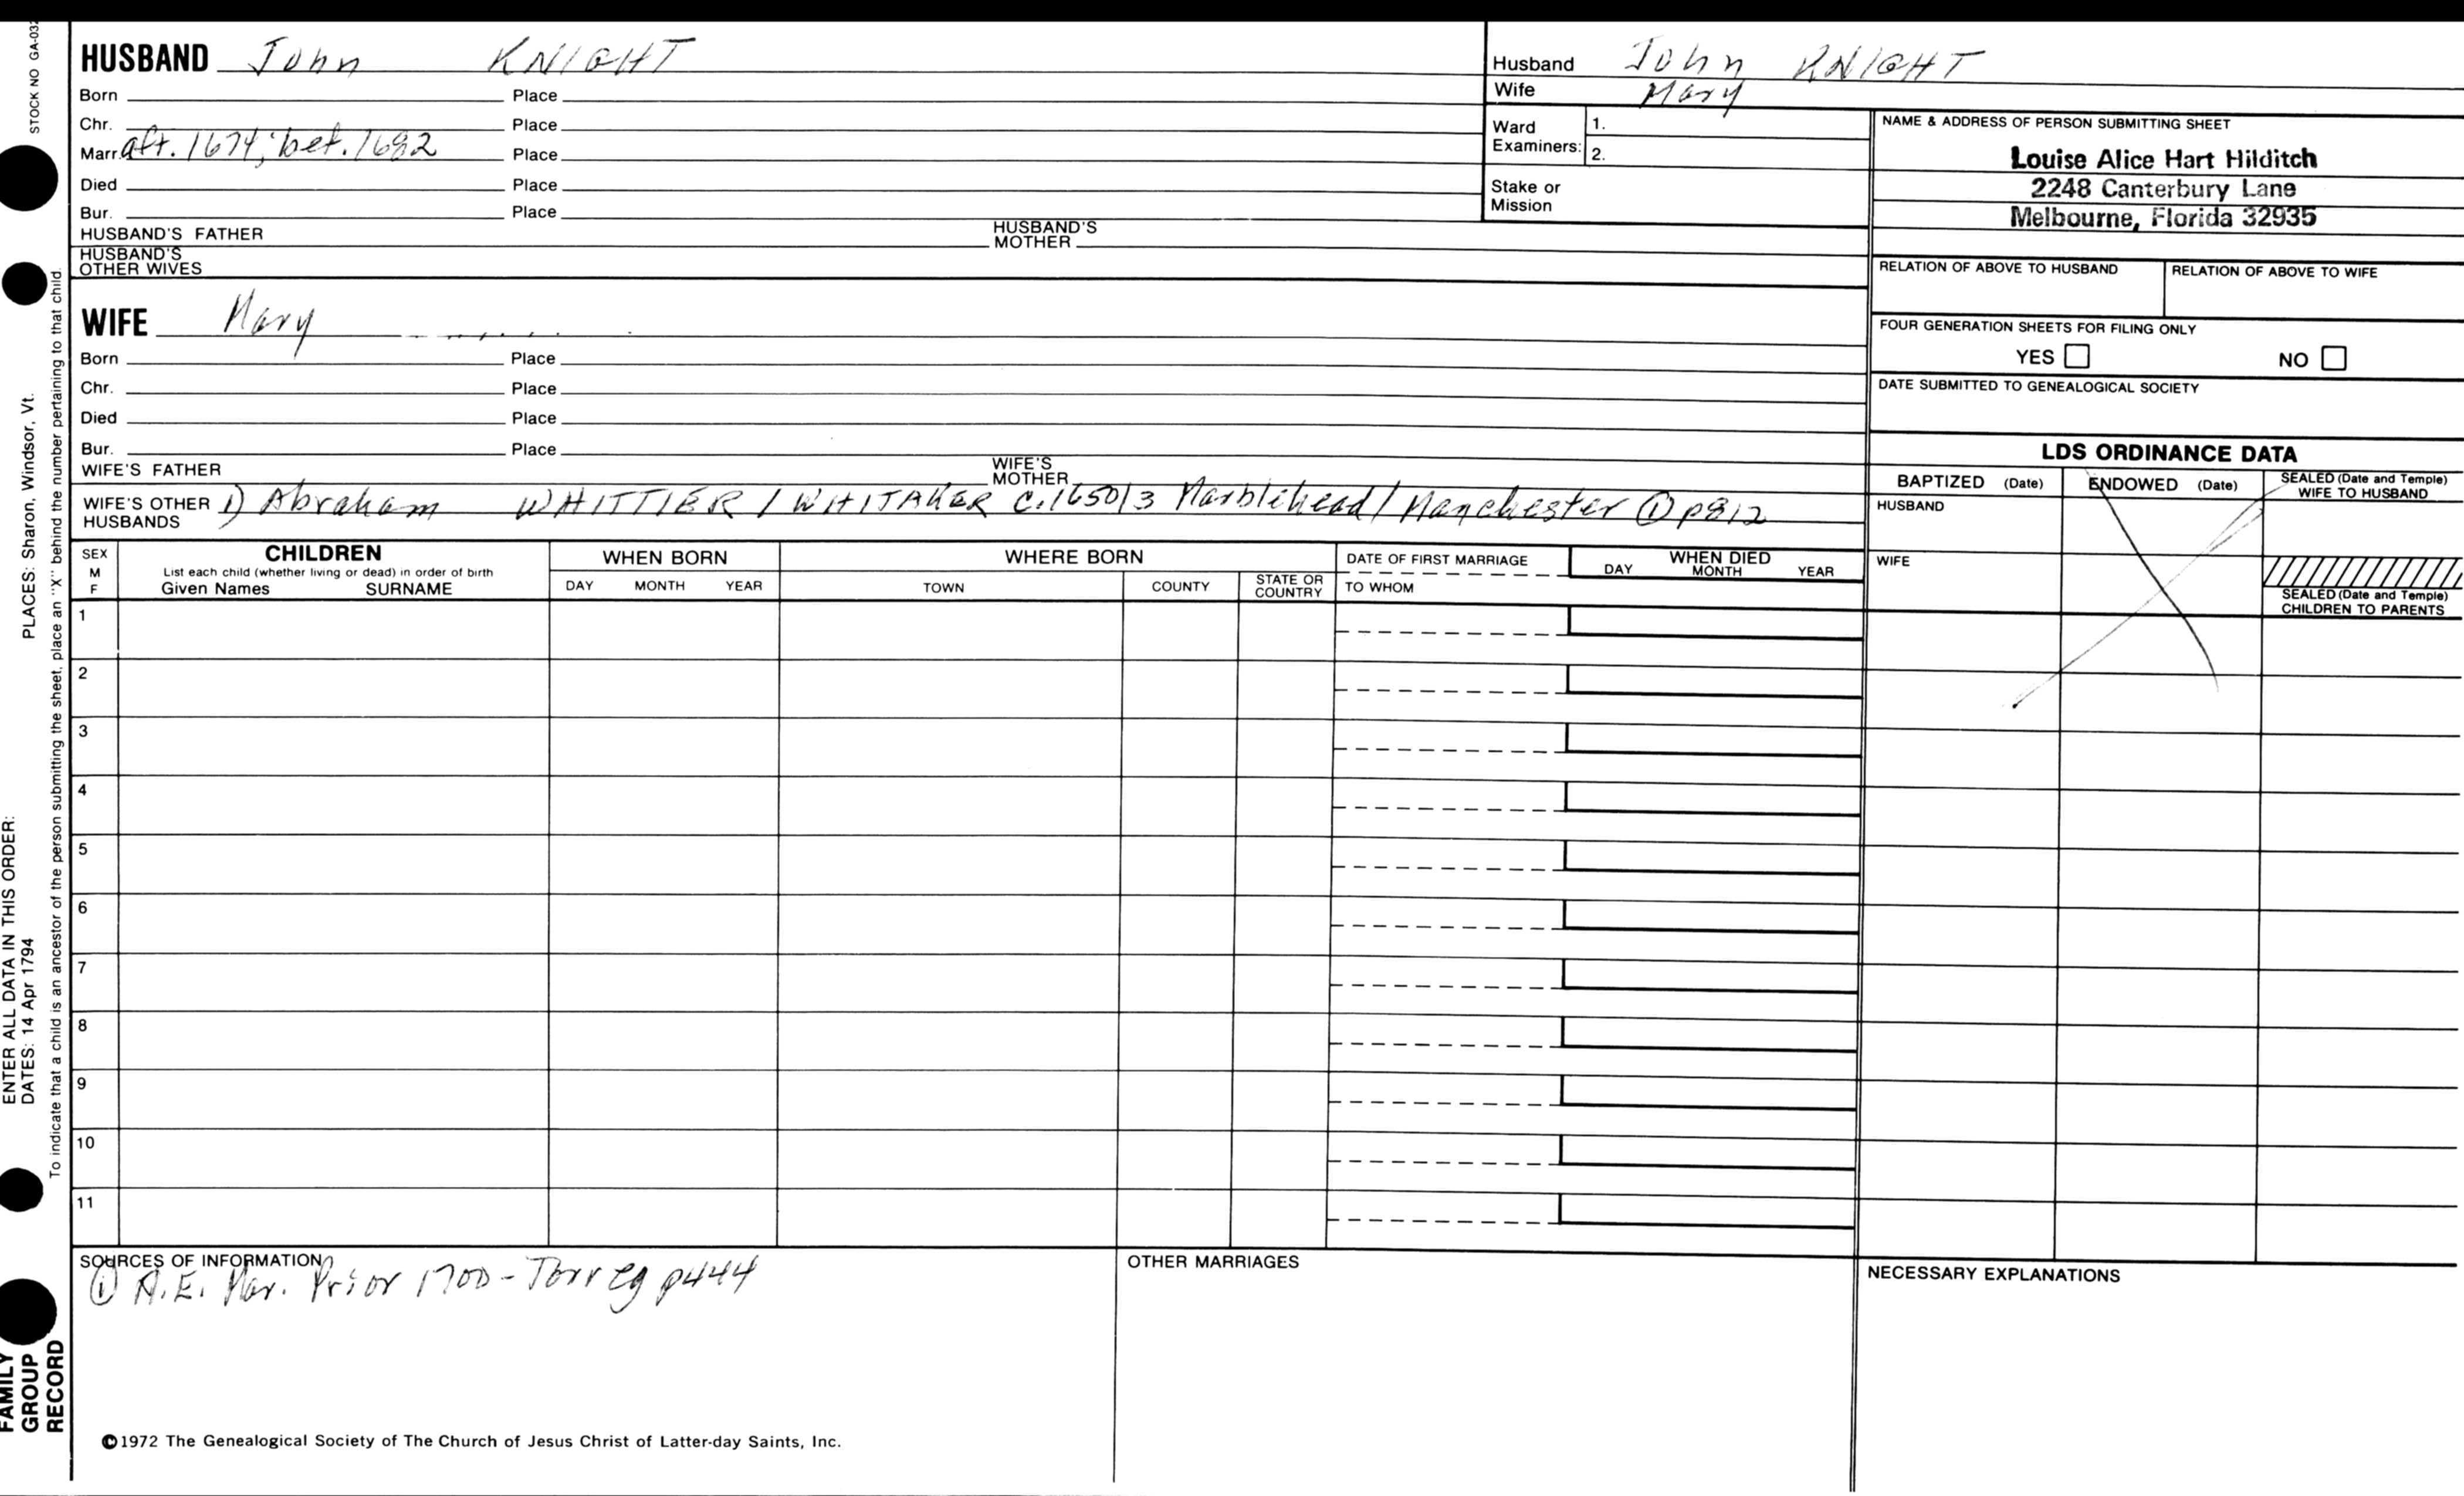 STOCK NO GA-032
HUSBAND John KNIGHT
Born Place
Chr. Place
Marr. aft. 1674; bef. 1682 Place
Died Place
Bur. Place
HUSBAND'S FATHER HUSBAND'S MOTHER
HUSBAND'S OTHER WIVES
Husband John KNIGHT
Wife Mary
Ward Examiners: 1.
2.
Stake or Mission
NAME & ADDRESS OF PERSON SUBMITTING SHEET
Louise Alice Hart Hilditch
2248 Canterbury Lane
Melbourne, Florida 32935
RELATION OF ABOVE TO HUSBAND RELATION OF ABOVE TO WIFE
FOUR GENERATION SHEETS FOR FILING ONLY
YES NO
DATE SUBMITTED TO GENEALOGICAL SOCIETY
WIFE Mary
Born Place
Chr. Place
Died Place
Bur. Place
WIFE'S FATHER WIFE'S MOTHER
WIFE'S OTHER HUSBANDS 1) Abraham WHITTIER / WHITAKER c.1650/3 Marblehead / Manchester ① p812
LDS ORDINANCE DATA
BAPTIZED (Date) ENDOWED (Date) SEALED (Date and Temple) WIFE TO HUSBAND
HUSBAND
WIFE
SEALED (Date and Temple) CHILDREN TO PARENTS
SEX M F
CHILDREN
List each child (whether living or dead) in order of birth
Given Names SURNAME
WHEN BORN
DAY MONTH YEAR
WHERE BORN
TOWN COUNTY STATE OR COUNTRY
DATE OF FIRST MARRIAGE
TO WHOM
WHEN DIED
DAY MONTH YEAR
1
2
3
4
5
6
7
8
9
10
11
SOURCES OF INFORMATION
① N.E. Mar. Prior 1700 - Torrey p444
OTHER MARRIAGES
NECESSARY EXPLANATIONS
©1972 The Genealogical Society of The Church of Jesus Christ of Latter-day Saints, Inc.
FAMILY GROUP RECORD
ENTER ALL DATA IN THIS ORDER:
DATES: 14 Apr 1794 PLACES: Sharon, Windsor, Vt.
To indicate that a child is an ancestor of the person submitting the sheet, place an "X" behind the number pertaining to that child.